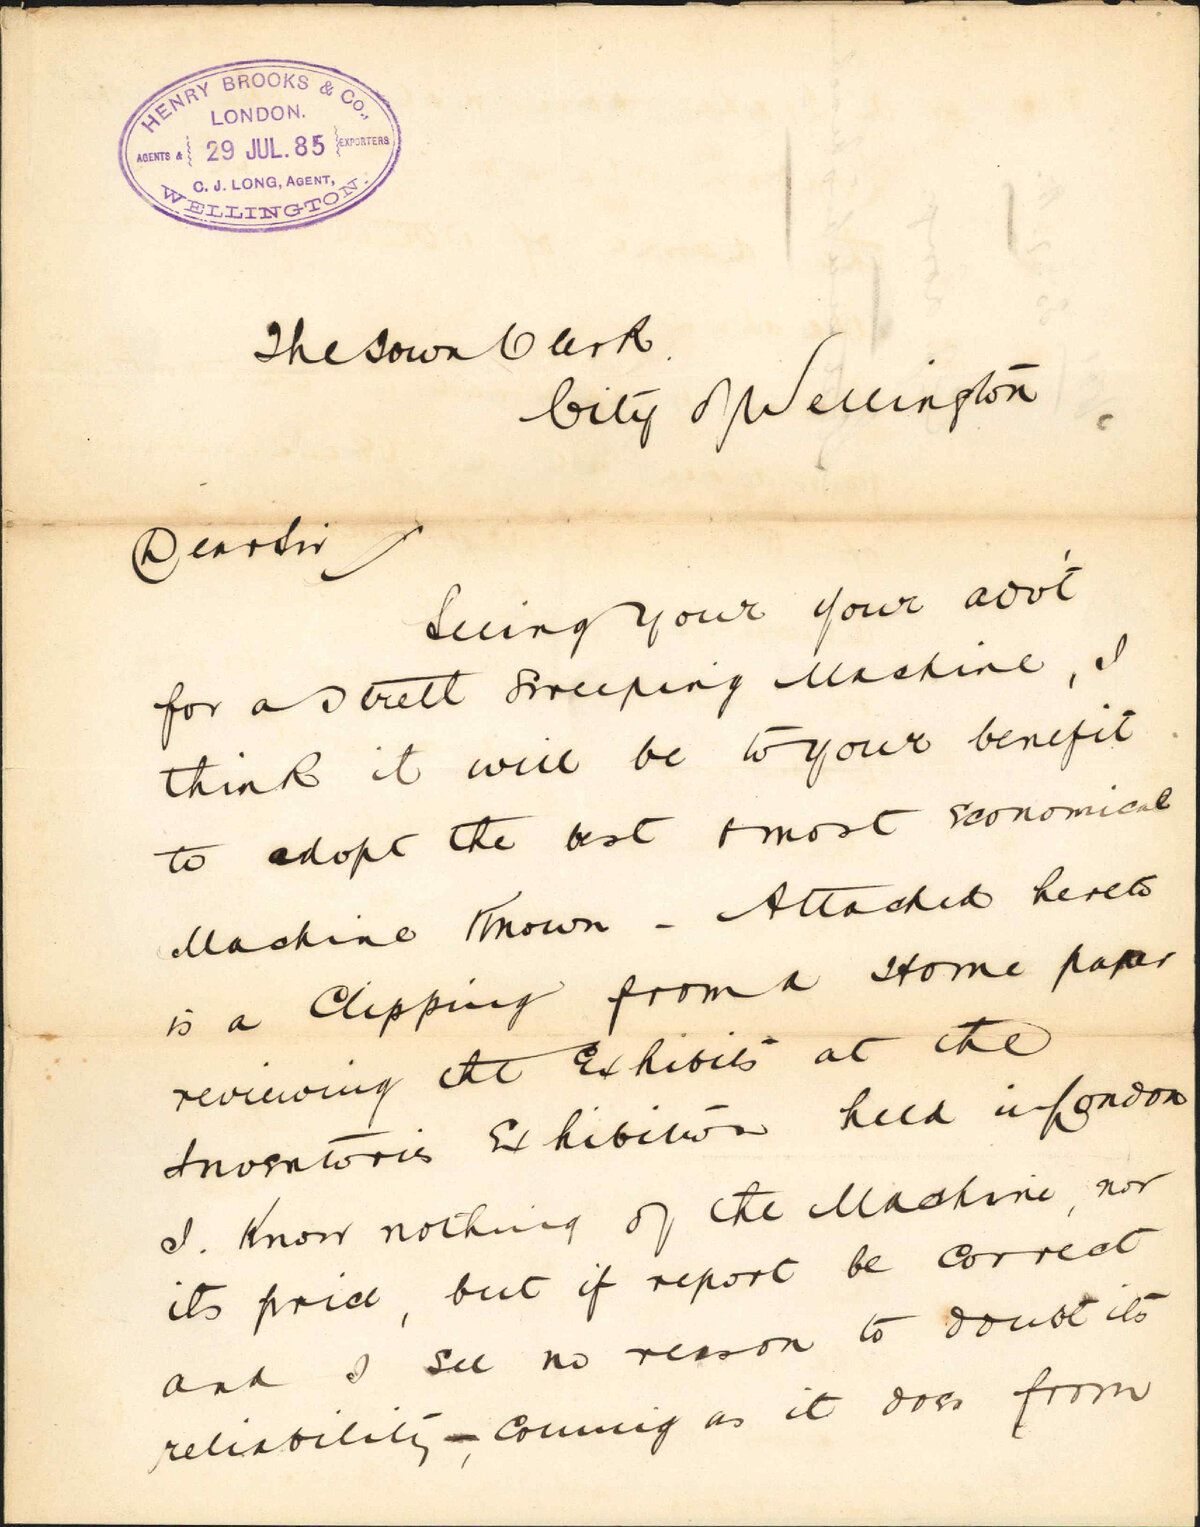 HENRY BROOKS & CO.,
LONDON.
AGENTS & 29 JUL. 85 EXPORTERS
C. J. LONG, AGENT,
WELLINGTON.
The Town Clerk.
City of Wellington
Dear Sir
Seeing your your advt
for a Street Sweeping Machine, I
think it will be to your benefit
to adopt the best & most Economical
Machine Known - Attached hereto
is a Clipping from a Home paper
reviewing the Exhibits at the
Inventories Exhibition held in London
I. Know nothing of the Machine, nor
its price, but if report be Correct
and I see no reason to doubt its
reliability -, Coming as it does from